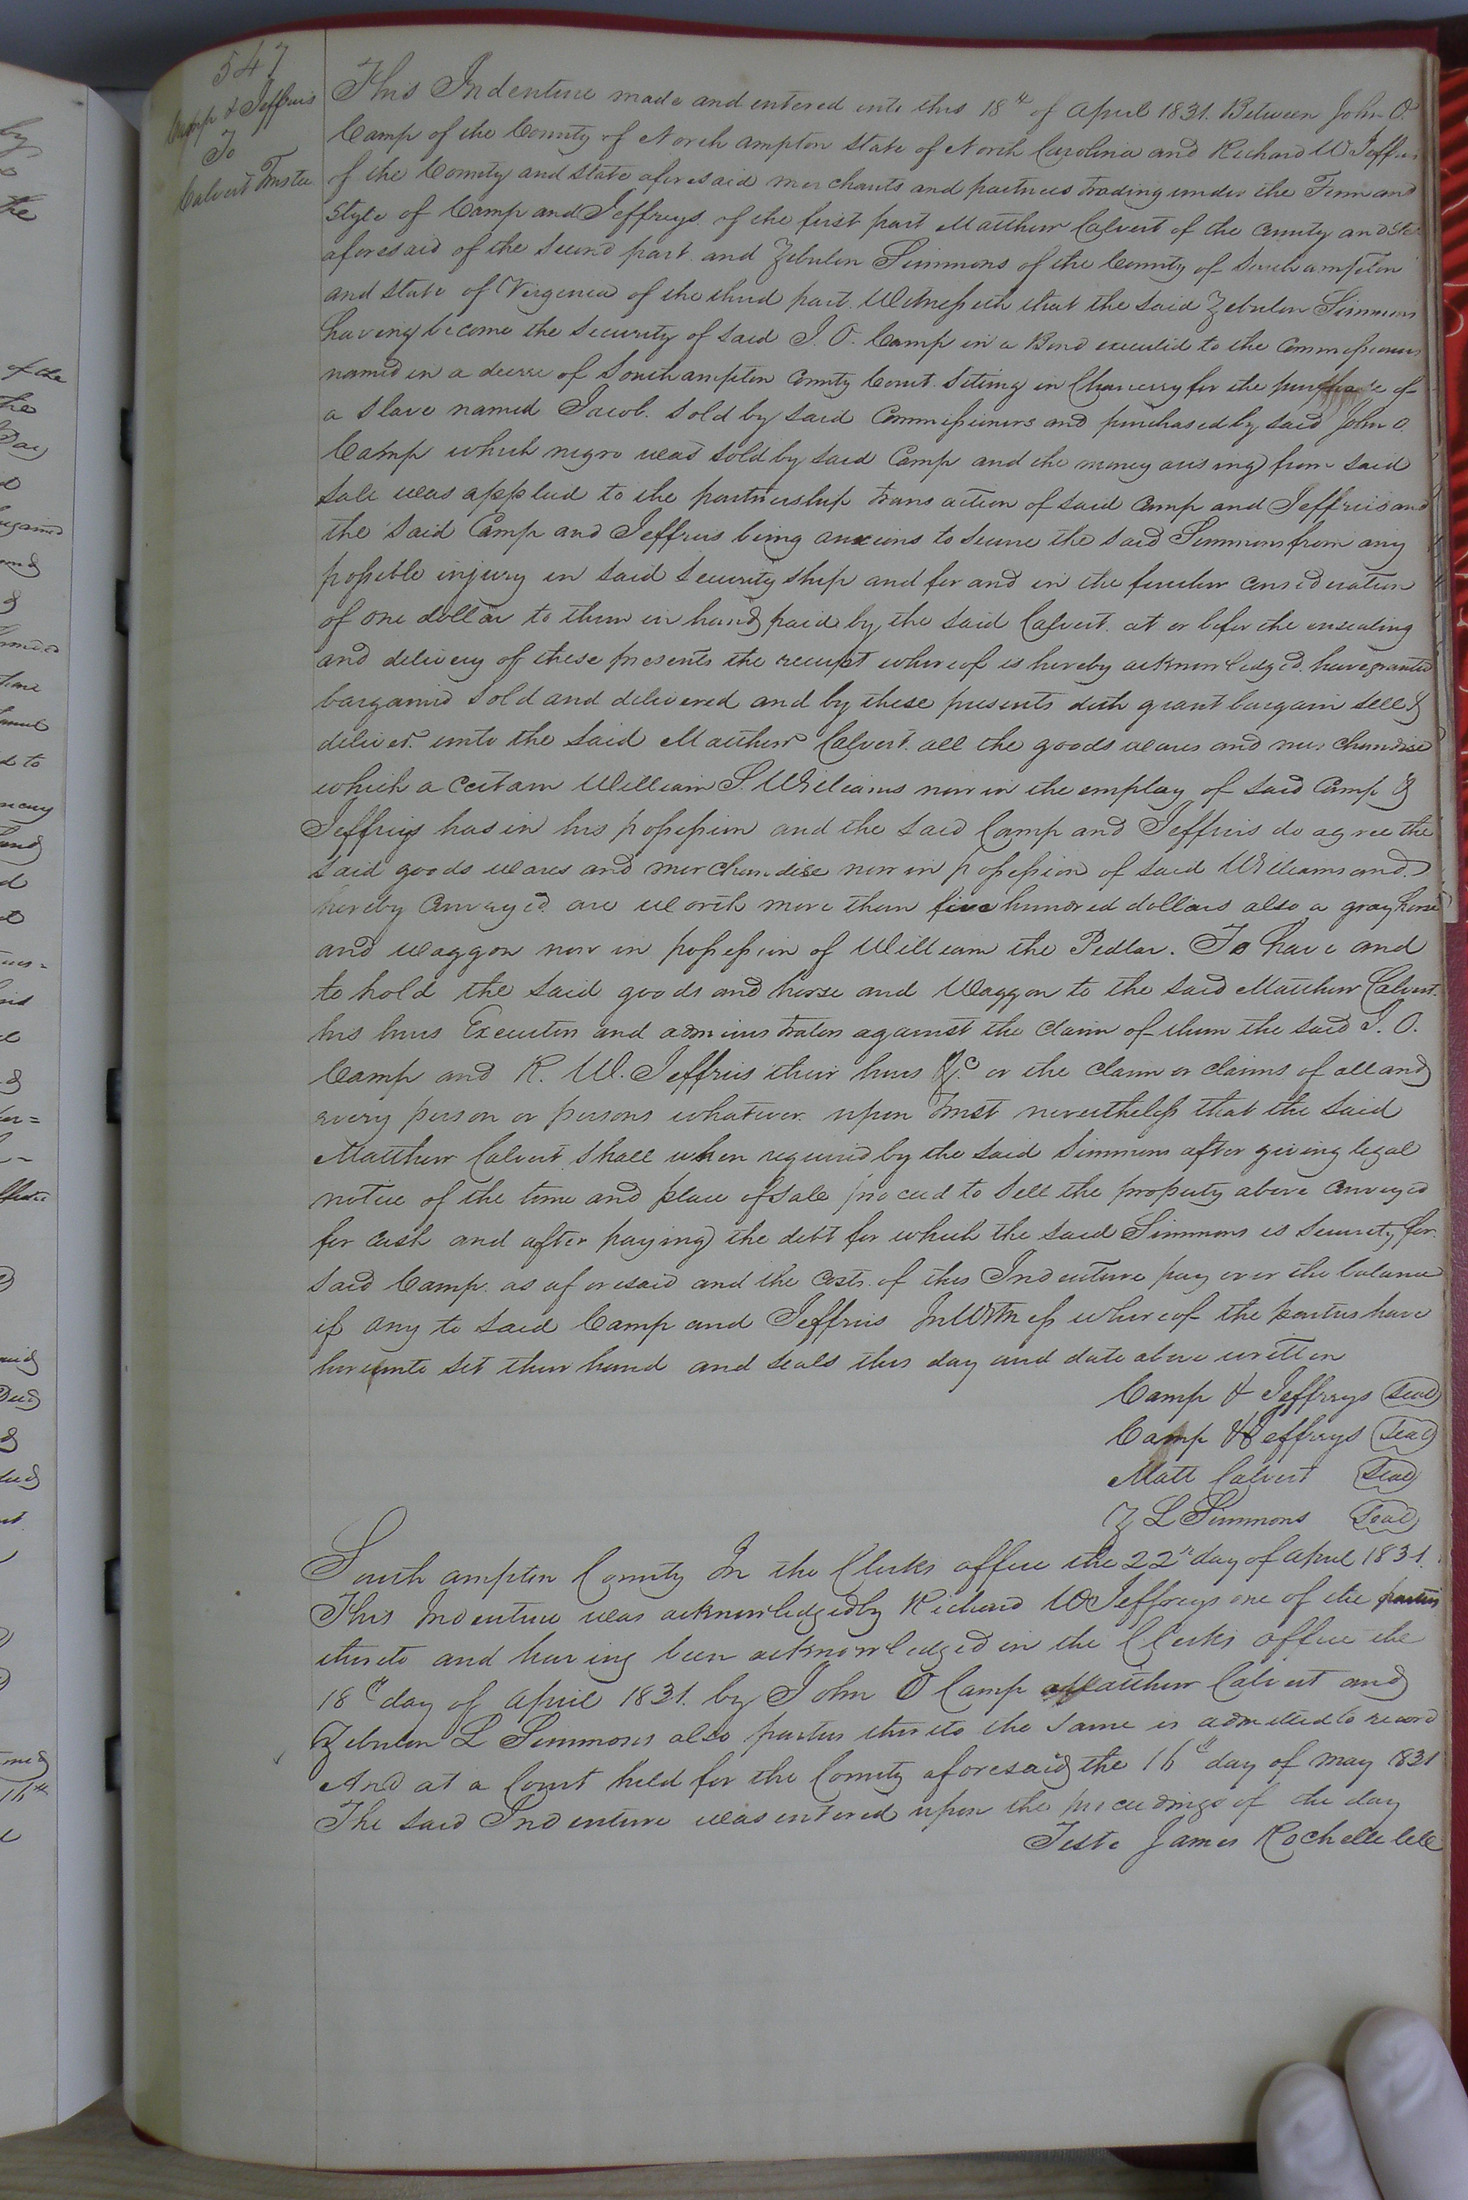 547
Camp & Jeffries
To
Calvert Trustee
This Indenture made and entered into this 18th of April 1831. Between John O.
Camp of the County of North ampton State of North Carolina and Richard W Jeffries
of the County and State aforesaid merchants and partners trading under the Firm and
Style of Camp and Jeffreys. of the first part Matthew Calvert of the County and State
aforesaid of the Second part. and Zebulon Simmons of the County of Southampton
and State of Virginia of the third part. Witnesseth that the said Zebulon Simmons
having become the security of said J. O. Camp in a Bond executed to the Commissioners
named in a decree of Southampton County Court. Siting in Chancerry for the purchase of
a Slave named Jacob. Sold by said Commissioners and purchased by said John O.
Camp which negro was sold by said Camp and the money arising from said
Sale was applied to the partnership transaction of said Camp and Jeffries and
the said Camp and Jeffries being anxious to secure the said Simmons from any
possible injury in said Security ship and for and in the further consideration
of one dollar to them in hand paid by the said Calvert. at or befor the ensealing
and delivery of these presents the receipt whereof is hereby acknowledged. have granted
bargained Sold and delivered and by these presents doth grant bargain sell &
deliver. unto the said Matthew Calvert. all the goods wares and merchandise
which a certain William S. Williams now in the employ of said Camp &
Jeffries has in his possession and the said Camp and Jeffries do agree the
said goods wares and merchandise now in possession of said Williams and
hereby conveyed are worth more than five hundred dollars also a gray horse
and waggon now in possession of William the Pedlar. To have and
to hold the said goods and horse and Waggon to the said Matthew Calvert.
his heirs Executors and administrators against the claim of them the said J. O.
Camp and R. W. Jeffries their heirs &c or the claim or claims of all and
every person or persons whatever. upon trust nevertheless that the said
Matthew Calvert shall when required by the said Simmons after giving legal
notice of the time and place of sale proceed to sell the property above conveyed
for cash and after paying the debt for which the said Simmons is security for.
said Camp. as aforesaid and the costs. of this Indenture pay over the balance
if any to said Camp and Jeffries In Witness whereof the parties have
hereunto set their hand and seals this day and date above written
Camp & Jeffreys Seal
Camp & Jeffreys Seal
Matt Calvert Seal
Z L Simmons Seal
South ampton County In the Clerks office the 22nd day of April 1831.
This Indenture was acknowledged by Richard W Jeffreys one of the parties
thereto and having been acknowledged in the Clerks office the
18th day of April 1831. by John O Camp Matthew Calvert and
Zebulon L Simmons also parties thereto the same is admitted to record
And at a Court held for the County aforesaid the 16th day of May 1831
The said Indenture was entered upon the proceedings of the day
Teste James Rochelle Clk